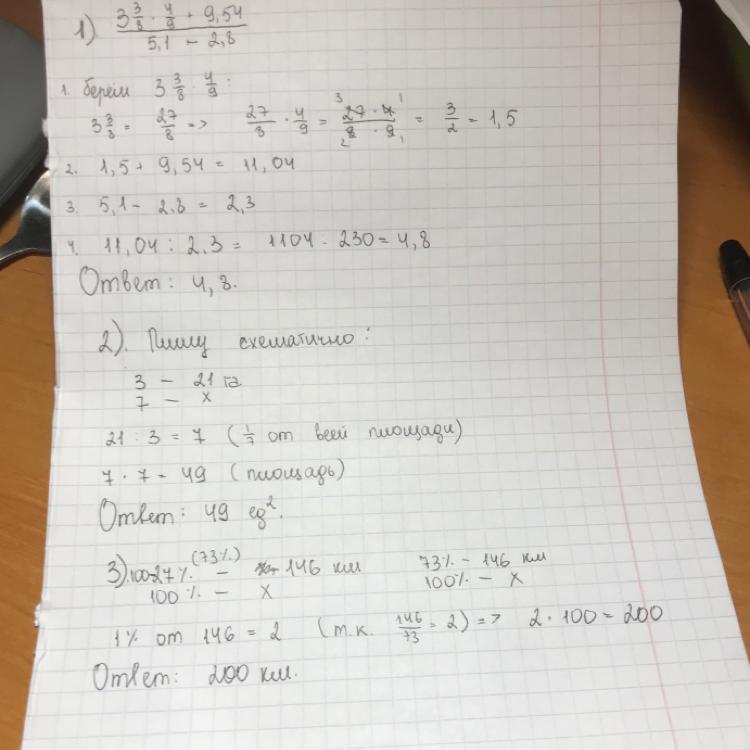 1) (3 3/8 · 4/9 + 9,54) / (5,1 - 2,8)
1. берём 3 3/8 · 4/9 :
3 3/8 = 27/8 => 27/8 · 4/9 = (27 · 4)/(8 · 9) = 3/2 = 1,5
2. 1,5 + 9,54 = 11,04
3. 5,1 - 2.8 = 2,3
4. 11,04 : 2.3 = 1104 : 230 = 4,8
Ответ: 4,8.
2). Пишу схематично:
3 - 21 га
7 - x
21 : 3 = 7 (1/7 от всей площади)
7 · 7 = 49 (площадь)
Ответ: 49 ед².
3). 100-27%. (73%) - 146 км 73% - 146 км
100 % - x 100% - x
1% от 146 = 2 (т.к. 146/73 = 2) => 2 · 100 = 200
Ответ: 200 км.